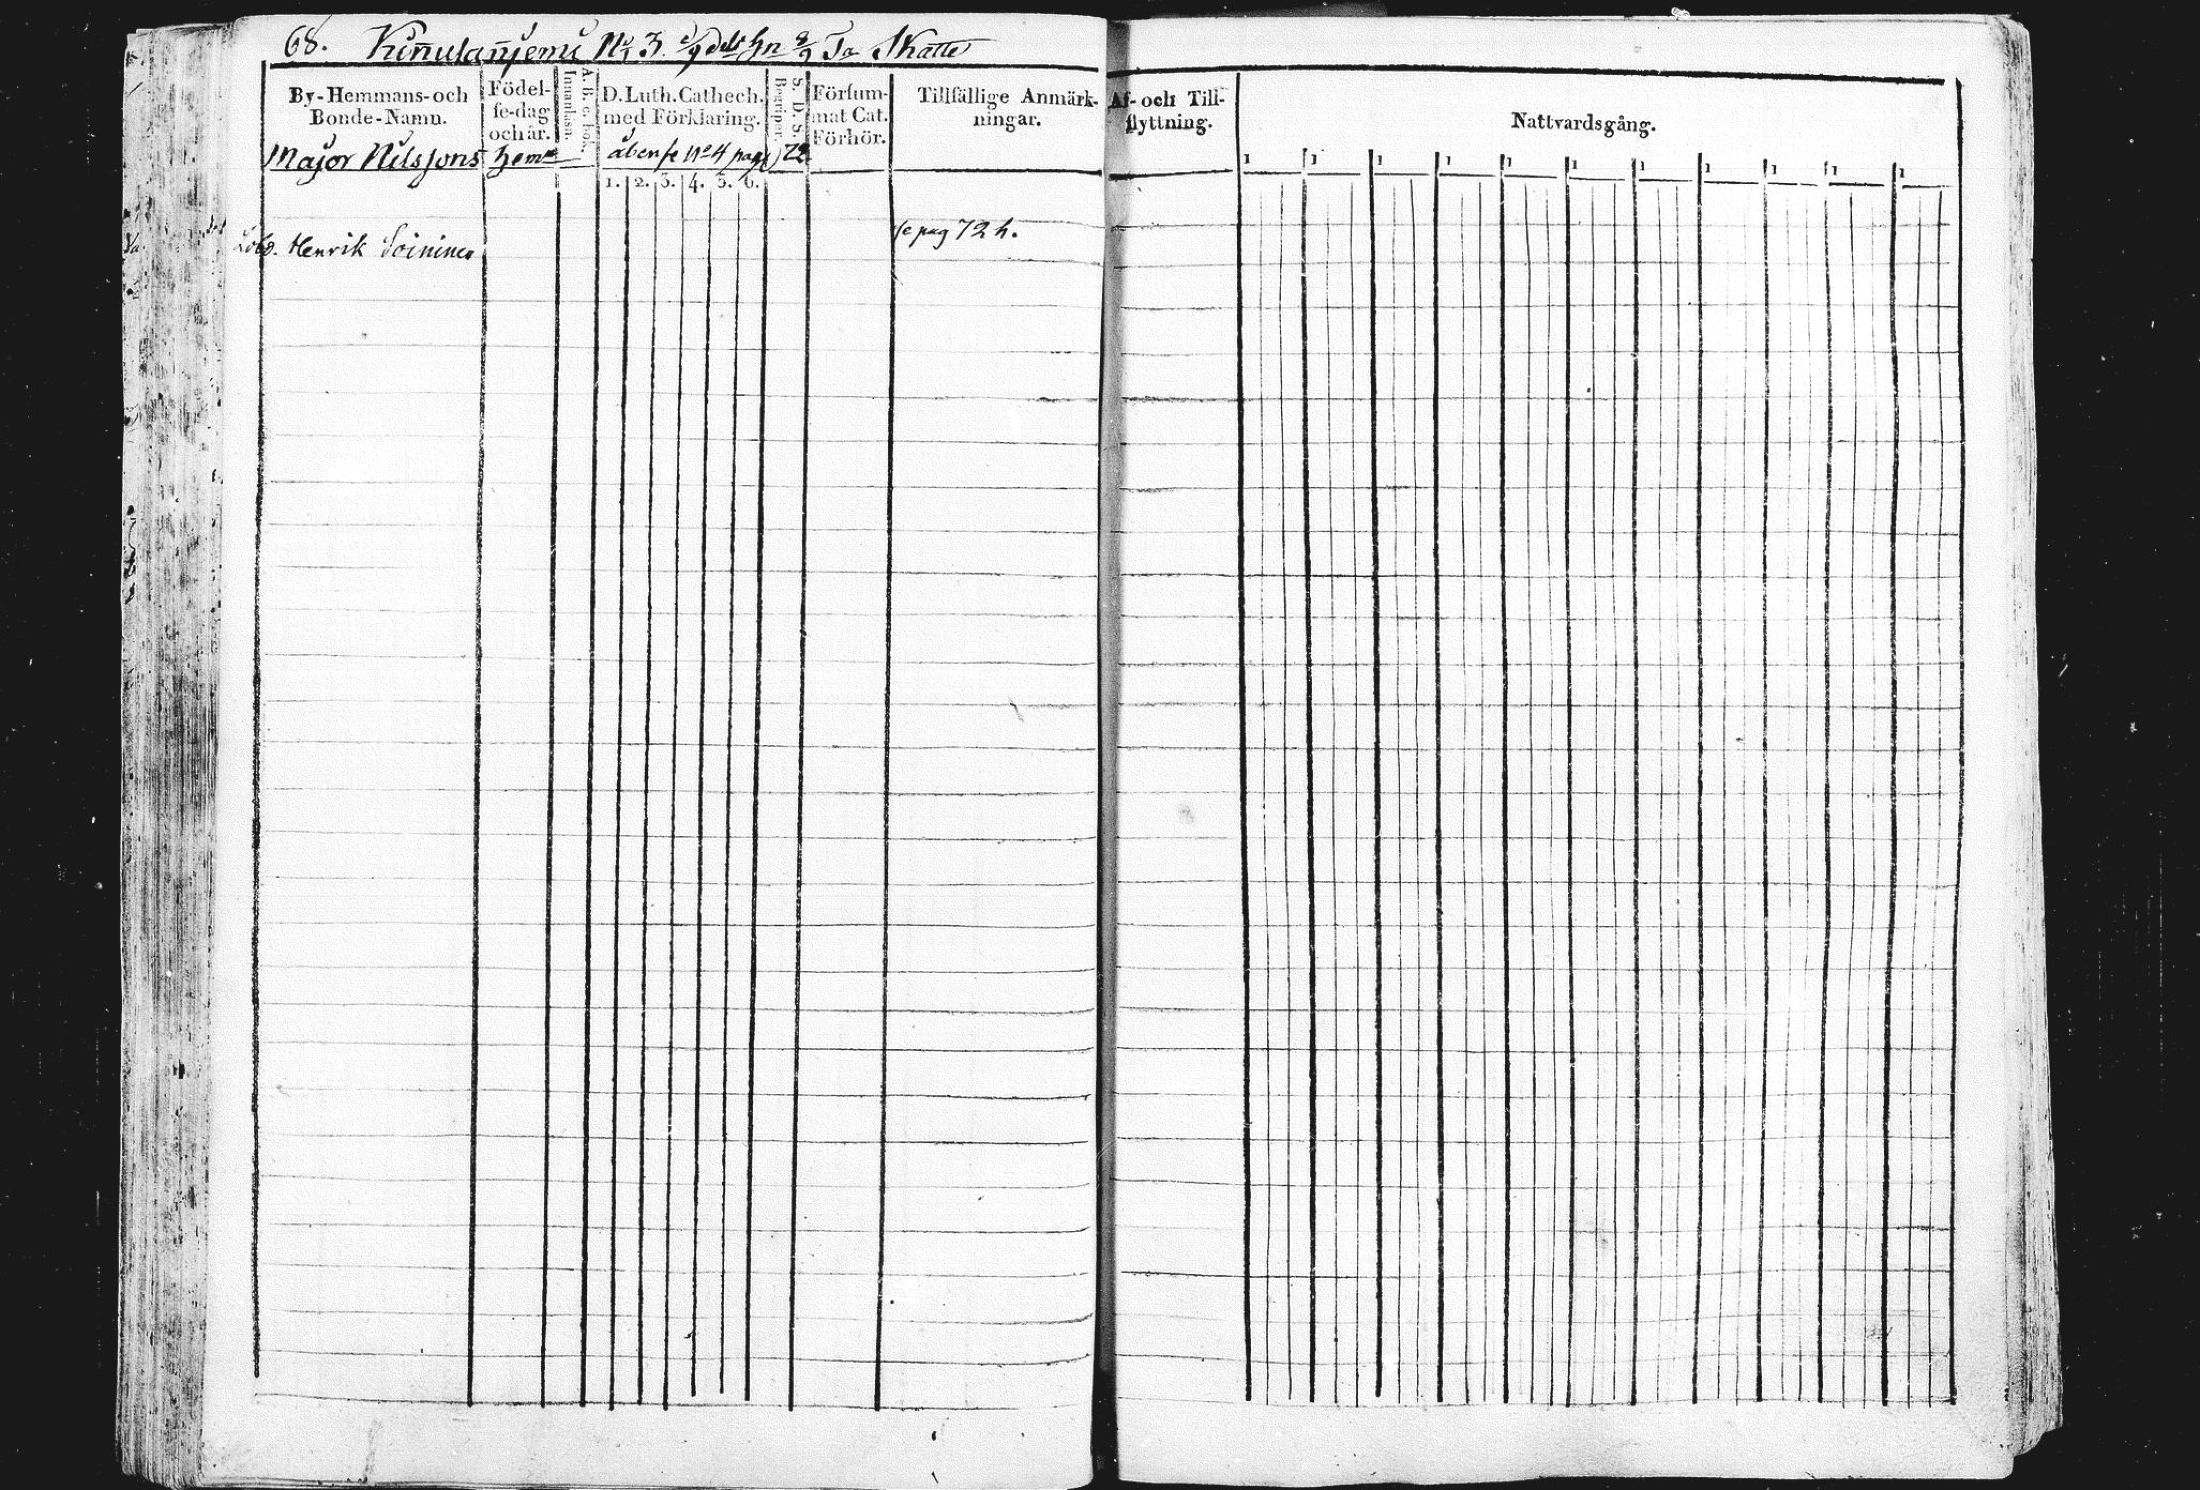 68. Kiñulanjemi No 3 hn 8/9 Skatte
By-Hemmans-och Bonde-Namn.
Födelse-dag och år.
Innanläsn.
A. B. c. bok.
D. Luth. Cathech. med Förklaring.
S. D. S.
Begriper.
Försummat Cat. Förhör.
Tillfällige Anmärkningar.
Af- och Tillflyttning.
Nattvardsgång.
Major Nilssons hemn äfven se No 4 pag 72
1. 2. 3. 4. 5. 6.
1 1 1 1 1 1 1 1 1 1 1
Henrik Soininen
se pag 72 h.